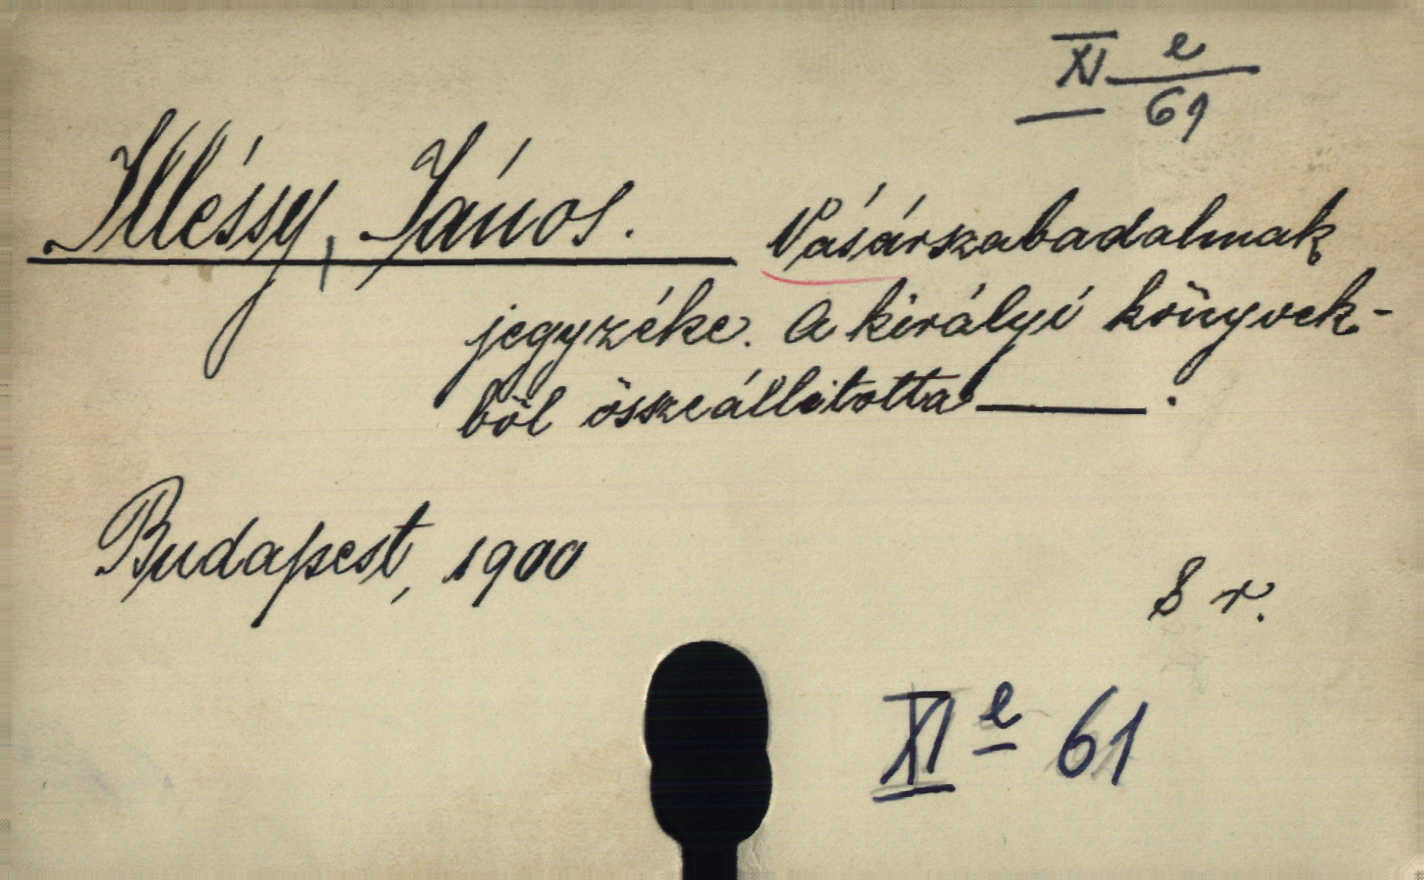 XI e/61
Illéssy, János. Vásárszabadalmak
jegyzéke. A királyi könyvek-
ből összeállította ——.
Budapest, 1900
8 r.
XI e 61